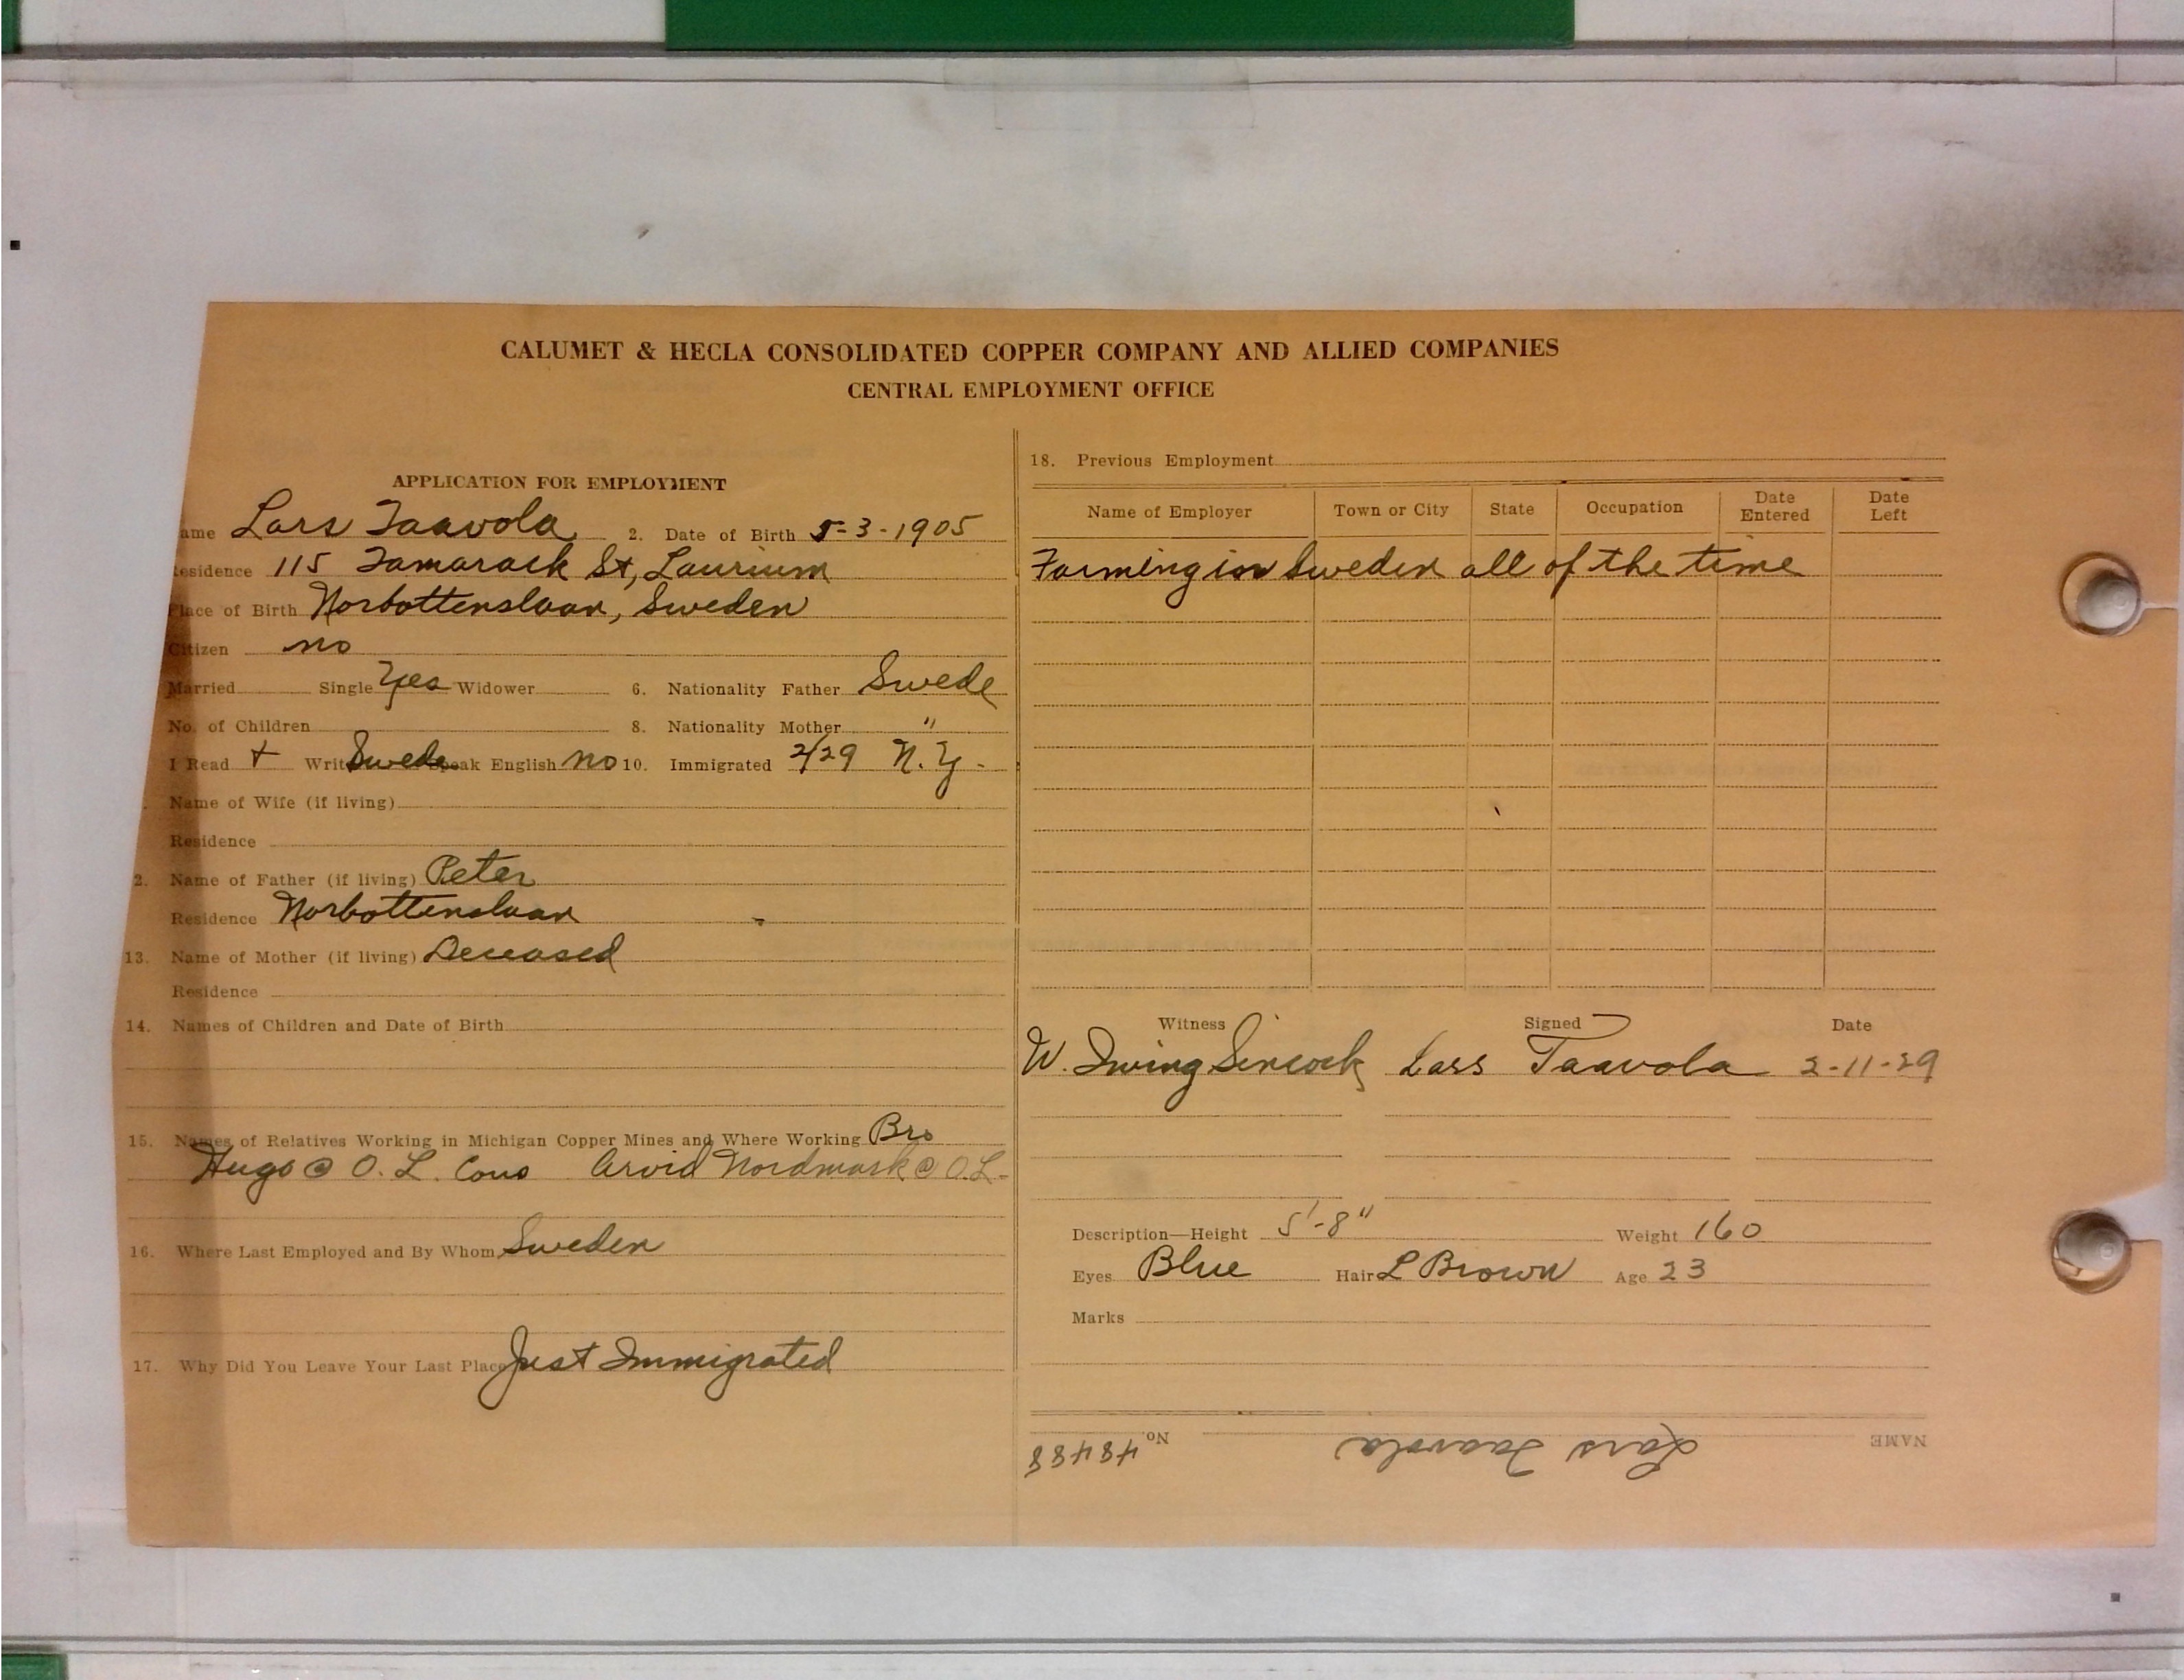 CALUMET & HECLA CONSOLIDATED COPPER COMPANY AND ALLIED COMPANIES
CENTRAL EMPLOYMENT OFFICE
APPLICATION FOR EMPLOYMENT
ame Lars Taavola 2. Date of Birth 5-3-1905
esidence 115 Tamarack St, Laurium
Place of Birth Norbottenslaan, Sweden
Citizen no
Married Single Yes Widower 6. Nationality Father Swede
No. of Children 8. Nationality Mother "
I Read + Write Swede Speak English no 10. Immigrated 2/29 N.Y.
Name of Wife (if living)
Residence
2. Name of Father (if living) Peter
Residence Norbottenslaan
13. Name of Mother (if living) Deceased
Residence
14. Names of Children and Date of Birth
15. Names of Relatives Working in Michigan Copper Mines and Where Working Bro
Hugo @ O. L. Cons Arvid Nordmark @ O.L.
16. Where Last Employed and By Whom Sweden
17. Why Did You Leave Your Last Place Just Immigrated
18. Previous Employment
Name of Employer Town or City State Occupation Date Entered Date Left
Farming in Sweden all of the time
Witness Signed Date
W. Irving Sincock Lars Taavola 2-11-29
Description—Height 5'-8" Weight 160
Eyes Blue Hair L Brown Age 23
Marks
NAME Lars Taavola No. 48488